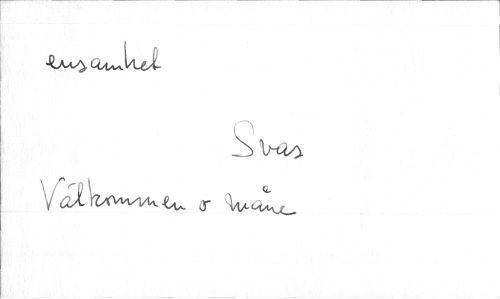 ensamhet
Svas
Välkommen o måne